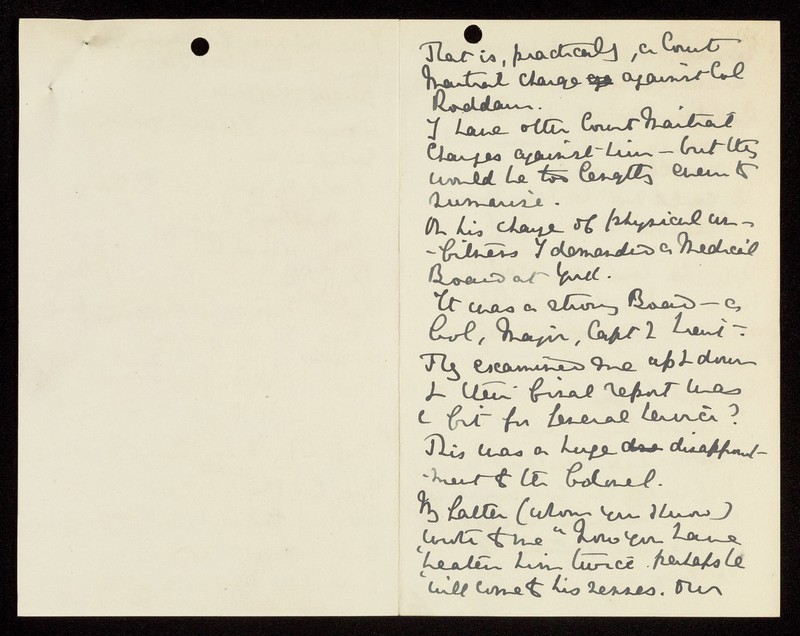 That is, practically, a Court
Martial charge against Col
Roddam.
I have other Court Martial
Charges against him – but they
would be too lengthy even to
summarise.
On his charge of physical un-
-fitness I demanded a Medical
Board at York.
It was a strong Board – a
Col, Major, Capt & Lieut.
They examined me up & down
& their final report was
"fit for General Service"
This was a huge disappoint-
-ment to the Colonel.
My Father (whom you know)
wrote to me "Now you have
"beaten him twice perhaps he
"will come to his senses. Our